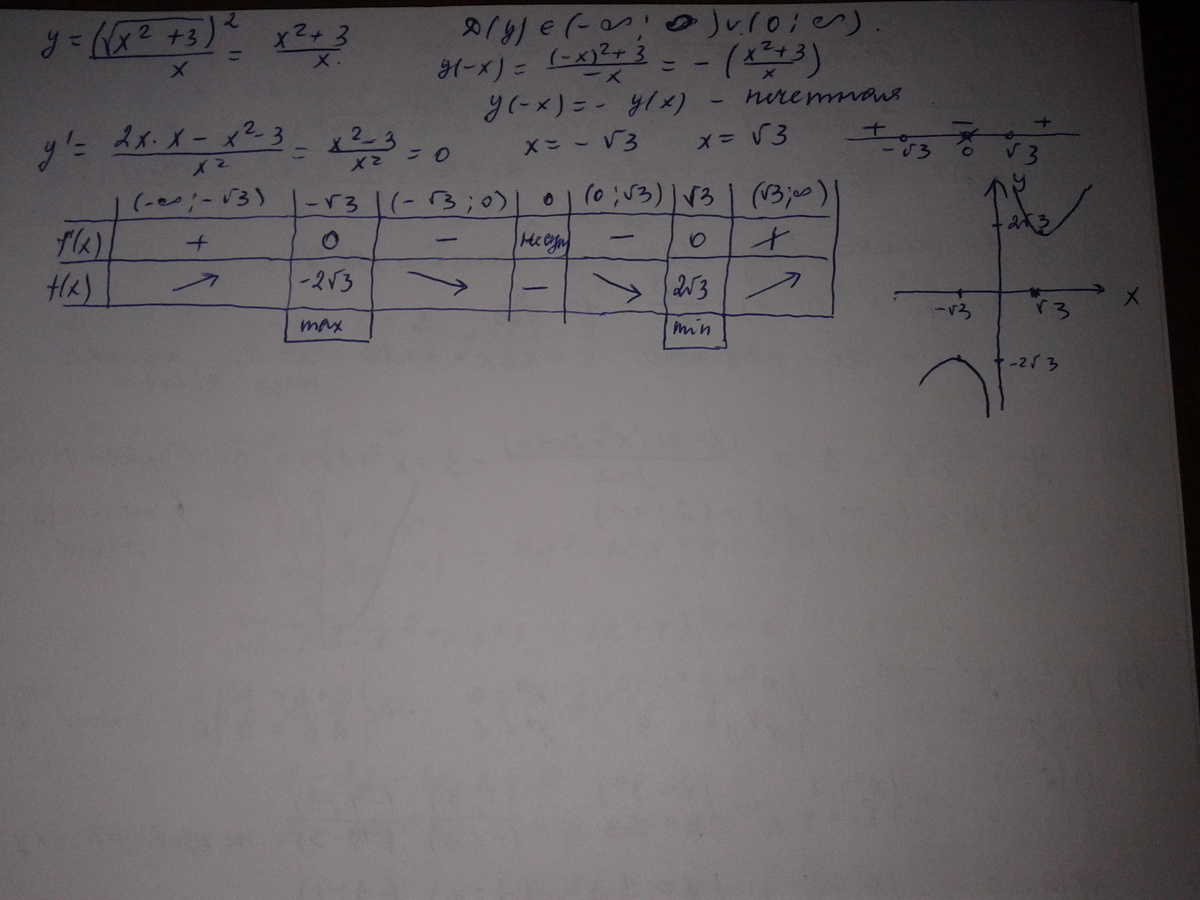 y = (√(x² + 3))² / x = (x² + 3) / x.
D(y) ∈ (-∞; 0) ∪ (0; ∞).
y(-x) = ((-x)² + 3) / -x = - ((x² + 3) / x)
y(-x) = - y(x) - нечетная
y' = (2x · x - x² - 3) / x² = (x² - 3) / x² = 0 x = - √3 x = √3
+ - +
-√3 0 √3
(-∞; -√3) -√3 (-√3; 0) 0 (0; √3) √3 (√3; ∞)
f'(x) + 0 - не сущ - 0 +
f(x) ↗ -2√3 ↘ - ↘ 2√3 ↗
max min
y
2√3
-√3 √3 x
-2√3